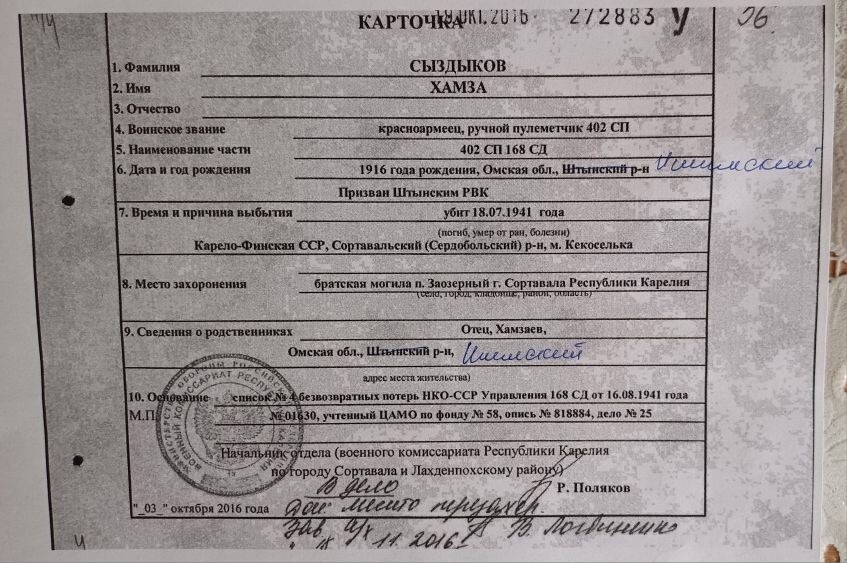 КАРТОЧКА
19 ОКТ. 2016
272883 У
96
1. Фамилия СЫЗДЫКОВ
2. Имя ХАМЗА
3. Отчество
4. Воинское звание красноармеец, ручной пулеметчик 402 СП
5. Наименование части 402 СП 168 СД
6. Дата и год рождения 1916 года рождения, Омская обл., Штынский р-н Ишимский
Призван Штынским РВК
7. Время и причина выбытия убит 18.07.1941 года
(погиб, умер от ран, болезни)
Карело-Финская ССР, Сортавальский (Сердобольский) р-н, м. Кекоселька
8. Место захоронения братская могила п. Заозерный г. Сортавала Республики Карелия
(село, город, кладбище, район, область)
9. Сведения о родственниках Отец, Хамзаев,
Омская обл., Штынский р-н, Ишимский
адрес места жительства)
10. Основание список № 4 безвозвратных потерь НКО-ССР Управления 168 СД от 16.08.1941 года
М.П. № 01630, учтенный ЦАМО по фонду № 58, опись № 818884, дело № 25
Начальник отдела (военного комиссариата Республики Карелия
по городу Сортавала и Лахденпохскому району)
В дело
Р. Поляков
"_03_" октября 2016 года
место
Зав. В. Логвиненко
11. 2016г